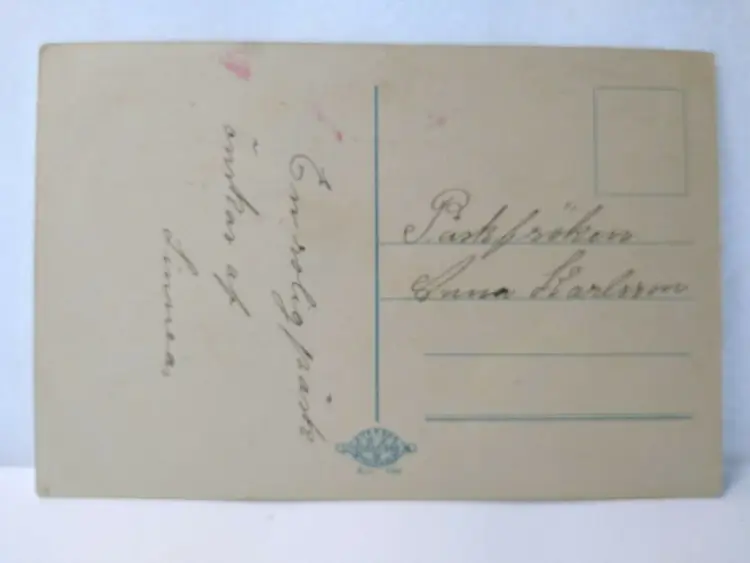 En rolig påsk
önskas af
Linnea.
Påskfröken
Anna Karlsson